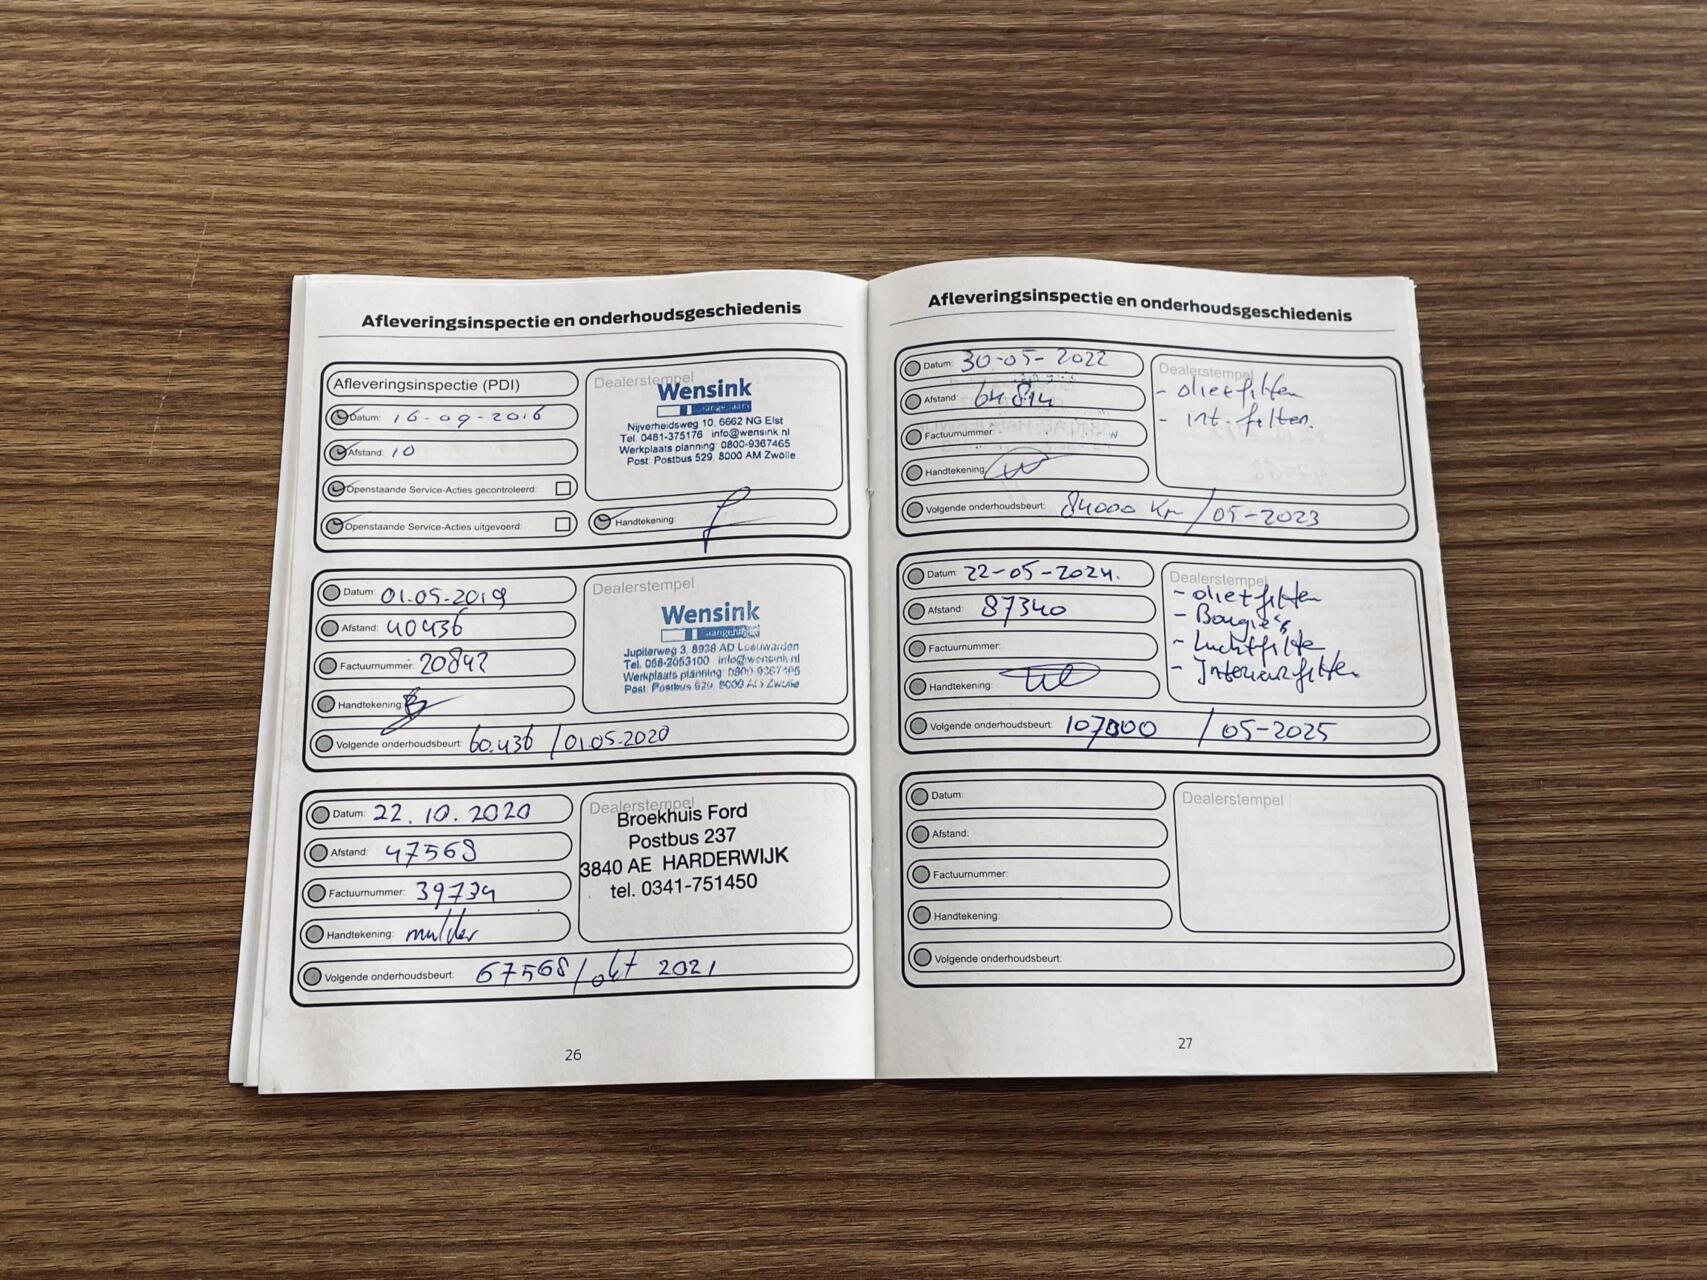 Afleveringsinspectie en onderhoudsgeschiedenis
Afleveringsinspectie (PDI)
Datum: 16-09-2016
Afstand: 10
Openstaande Service-Acties gecontroleerd:
Openstaande Service-Acties uitgevoerd:
Dealerstempel
Wensink
Nijverheidsweg 10, 6662 NG Elst
Tel. 0481-375176 info@wensink.nl
Werkplaats planning: 0800-9367465
Post: Postbus 529, 8000 AM Zwolle
Handtekening:
Datum: 01.05.2019
Afstand: 40436
Factuurnummer: 20842
Handtekening:
Volgende onderhoudsbeurt: 60.436 / 01.05.2020
Dealerstempel
Wensink
Jupiterweg 3, 8938 AD Leeuwarden
Tel. 058-2053100 info@wensink.nl
Werkplaats planning: 0800-9367465
Post: Postbus 529, 8000 AM Zwolle
Datum: 22.10.2020
Afstand: 47568
Factuurnummer: 39734
Handtekening: mulder
Volgende onderhoudsbeurt: 67568 / okt 2021
Dealerstempel
Broekhuis Ford
Postbus 237
3840 AE HARDERWIJK
tel. 0341-751450
26
Afleveringsinspectie en onderhoudsgeschiedenis
Datum: 30-05-2022
Afstand: 64814
Factuurnummer:
Handtekening:
Volgende onderhoudsbeurt: 84000 Km / 05-2023
Dealerstempel
- olie+filter
- int. filter.
Datum: 22-05-2024.
Afstand: 87340
Factuurnummer:
Handtekening:
Volgende onderhoudsbeurt: 107000 / 05-2025
Dealerstempel
- olie+filter
- Bougie's
- Luchtfilter
- Interieurfilter
Datum:
Afstand:
Factuurnummer:
Handtekening:
Volgende onderhoudsbeurt:
Dealerstempel
27